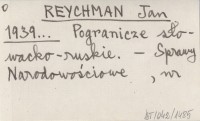 REYCHMAN Jan
1939... Pogranicze sło-
wacko-ruskie. - Sprawy
Narodowościowe , nr